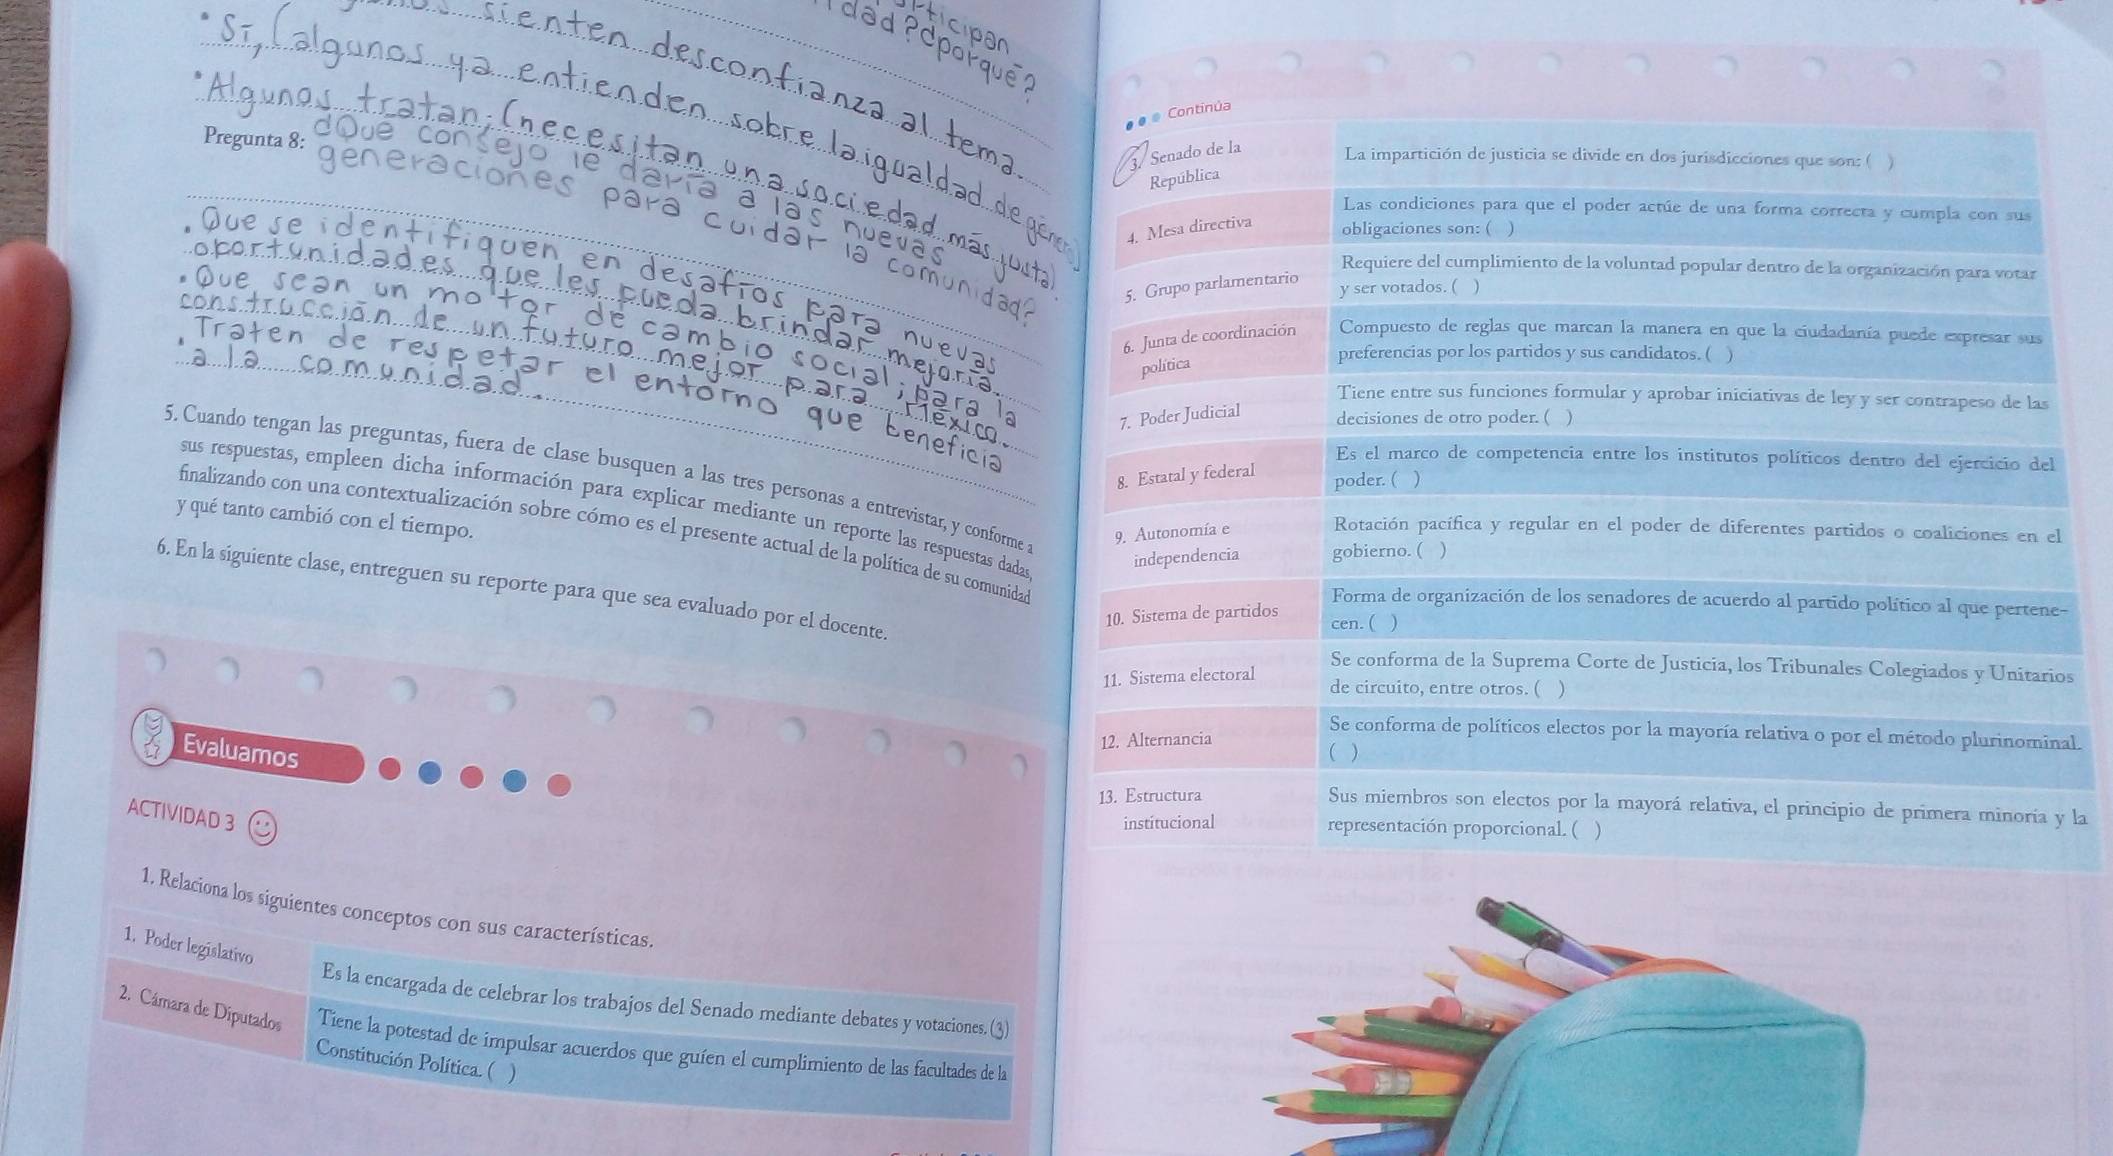 rticipan
idad? ¿porqué?
sienten desconfianza al tema.
• Sí, (algunos ya entienden sobre la igualdad de género)
• Algunos tratan; (necesitan una sociedad más justa).
Pregunta 8: ¿Qué consejo le daría a las nuevas
generaciones para cuidar la comunidad?
• Que se identifiquen en desafíos para nuevas
oportunidades que les pueda brindar mejoría.
• Que sean un motor de cambio social; para la
construcción de un futuro mejor para México.
• Traten de respetar el entorno que beneficia
a la comunidad.
5. Cuando tengan las preguntas, fuera de clase busquen a las tres personas a entrevistar, y conforme a
sus respuestas, empleen dicha información para explicar mediante un reporte las respuestas dadas,
finalizando con una contextualización sobre cómo es el presente actual de la política de su comunidad
y qué tanto cambió con el tiempo.
6. En la siguiente clase, entreguen su reporte para que sea evaluado por el docente.
Evaluamos
ACTIVIDAD 3
1. Relaciona los siguientes conceptos con sus características.
1. Poder legislativo
Es la encargada de celebrar los trabajos del Senado mediante debates y votaciones. (3)
2. Cámara de Diputados
Tiene la potestad de impulsar acuerdos que guíen el cumplimiento de las facultades de la
Constitución Política. ( )
Continúa
3. Senado de la
República
La impartición de justicia se divide en dos jurisdicciones que son: ( )
4. Mesa directiva
Las condiciones para que el poder actúe de una forma correcta y cumpla con sus
obligaciones son: ( )
5. Grupo parlamentario
Requiere del cumplimiento de la voluntad popular dentro de la organización para votar
y ser votados. ( )
6. Junta de coordinación
política
Compuesto de reglas que marcan la manera en que la ciudadanía puede expresar sus
preferencias por los partidos y sus candidatos. ( )
7. Poder Judicial
Tiene entre sus funciones formular y aprobar iniciativas de ley y ser contrapeso de las
decisiones de otro poder. ( )
8. Estatal y federal
Es el marco de competencia entre los institutos políticos dentro del ejercicio del
poder. ( )
9. Autonomía e
independencia
Rotación pacífica y regular en el poder de diferentes partidos o coaliciones en el
gobierno. ( )
10. Sistema de partidos
Forma de organización de los senadores de acuerdo al partido político al que pertene-
cen. ( )
11. Sistema electoral
Se conforma de la Suprema Corte de Justicia, los Tribunales Colegiados y Unitarios
de circuito, entre otros. ( )
12. Alternancia
Se conforma de políticos electos por la mayoría relativa o por el método plurinominal.
( )
13. Estructura
institucional
Sus miembros son electos por la mayorá relativa, el principio de primera minoría y la
representación proporcional. ( )